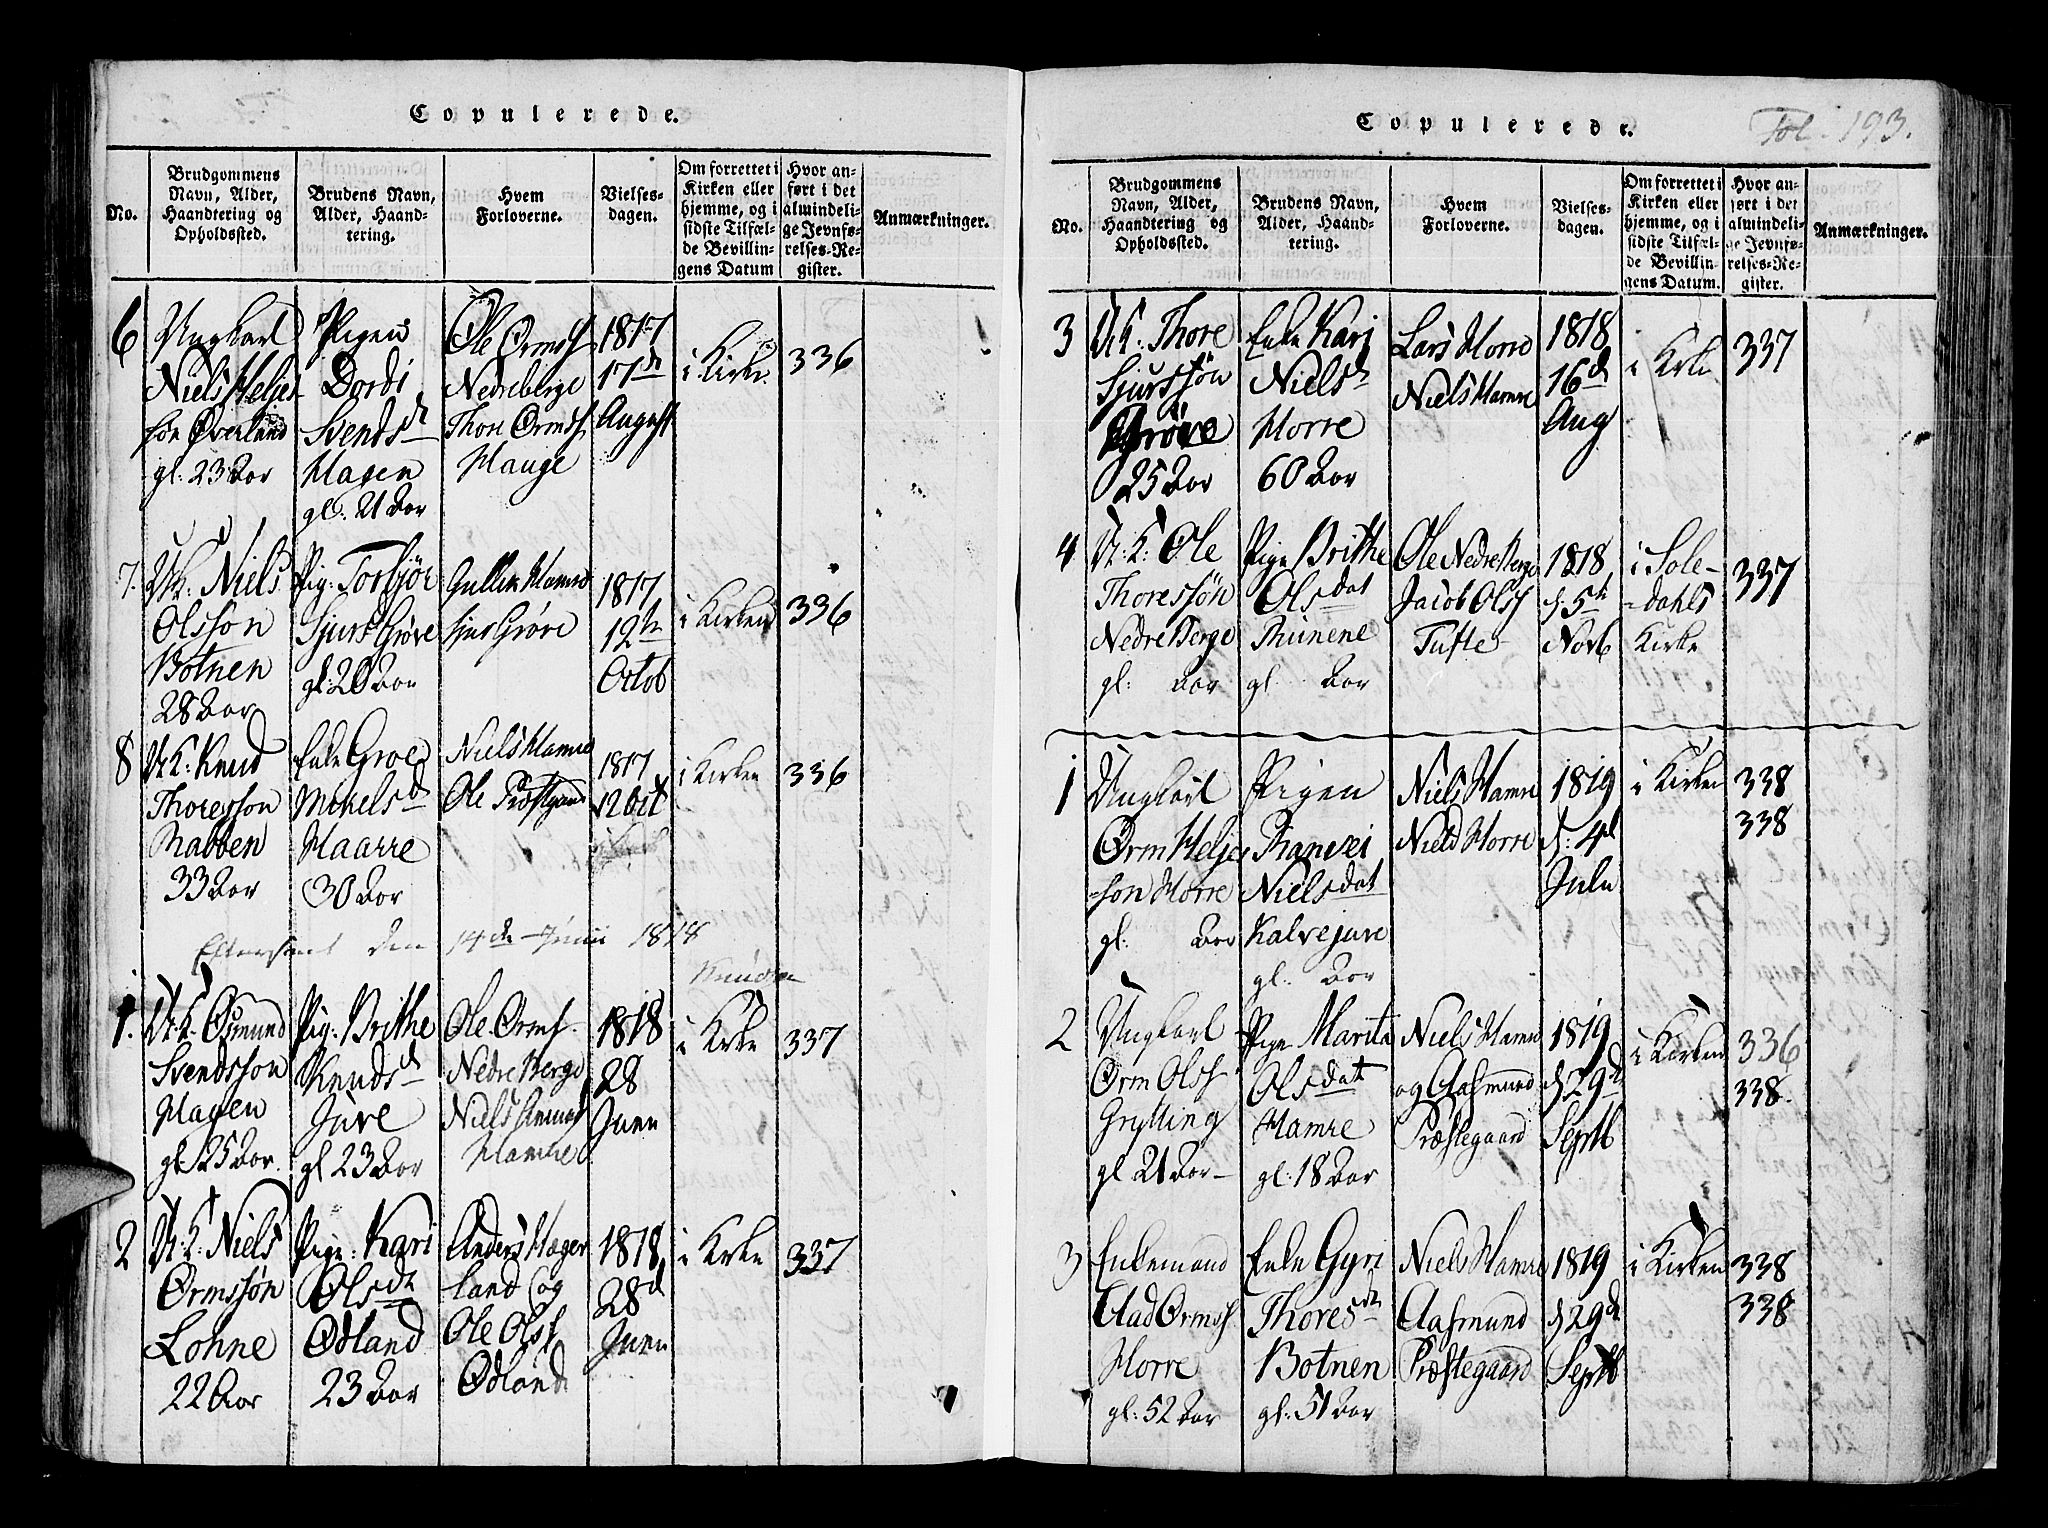 Copulerede.
No.
Brudgommens
Navn, Alder,
Haandtering og
Opholdssted.
Brudens Navn,
Alder, Haand-
tering.
Hvem
Forloverne.
Vielses-
dagen.
Om forrettet i
Kirken eller
hjemme, og i
sidste Tilfæl-
de Bevillin-
gens Datum
Hvor an-
ført i det
almindeli-
ge Jevnfø-
relses-Re-
gister.
Anmærkninger.
6
Ungkarl
Niels Heljes-
søn Øverland
gl: 23 Aar
Pigen
Dordi
Svendsd
Hagen
gl: 21 Aar
Ole Ormss
Nedreberge
Thore Ormss
Hauge
1817
17de
August
i Kirk
336
7.
U.K: Niels
Olsson
Botnen
28 Aar
Pig: Torbjør
Sjursd Grøve
gl: 20 Aar
Gullik Hamre
Sjur Grøve
1817
12te
Octob
i Kirken
336
8
U.K: Knud
Thoresson
Nabben
33 Aar
Enke Groe
Michelsd
Haarre
30 Aar
Niels Hamre
Ole Præstgaard
1817
12 Oct
i Kirken
336
Efterseet den 14de Junii 1818
Knudsen
1.
U.K. Osmund
Svendsson
Hagen
gl 25 Aar.
Pig: Brithe
Knudsd
Jure
gl 23 Aar
Ole Ormss.
Nedre Berge
Niels
Hamre
1818
28
Juni
i Kirke
337
2
U.K: Niels
Ormssøn
Lohne
22 Aar
Pige: Kari
Olsdt
Ødland
23 Aar
Anders Hager
land og
Ole Olss
Ødland
1818
28d
Juni
i Kirke
337
Copulerede.
Fol. 193.
No.
Brudgommens
Navn, Alder,
Haandtering og
Opholdssted.
Brudens Navn,
Alder, Haand-
tering.
Hvem
Forloverne.
Vielses-
dagen.
Om forrettet i
Kirken eller
hjemme, og i
sidste Tilfæl-
de Bevillin-
gens Datum.
Hvor an-
ført i det
almindeli-
ge Jevnfø-
relses-Re-
gister.
Anmærkninger.
3
U.K. Thore
Sjurssøn
Grøve
25 Aar
Enke Kari
Nielsd
Horre
60 Aar
Lars Horre
Niels Hamre
1818
16d
Aug
i Kirk
337
4
U.K: Ole
Thoressøn
Nedre Berge
gl: Aar
Pige Brithe
Olsdat
Thunene
gl Aar
Ole Nedre Berge
Jacob Olss
Tufte
1818
d. 5te
Novb
i Søle-
-dahls
Kirke
337
1
Ungkarl
Orm Helje
-søn Horre
gl: Aar
Pigen
Ranvei
Nielsdat
Kalvejure
gl: Aar
Niels Hamre
Niels Horre
1819
d: 4d
Julii
i Kirken
338
338
2
Ungkarl
Orm Olss
Grytting
gl 21 Aar
Pige Marita
Olsdat
Hamre
gl: 18 Aar
Niels Hamre
og Aasmund
Præstegaard
1819
d 29d
Septb
i Kirken
336
338.
3
Enkemand
Olad Ormss
Horre
gl: 52 Aar
Enke Gyri
Thoresdt
Botnen
gl: 51 Aar
Niels Hamre
Aasmund
Præstegaard
1819
d 29de
Septb
i Kirken
338
338